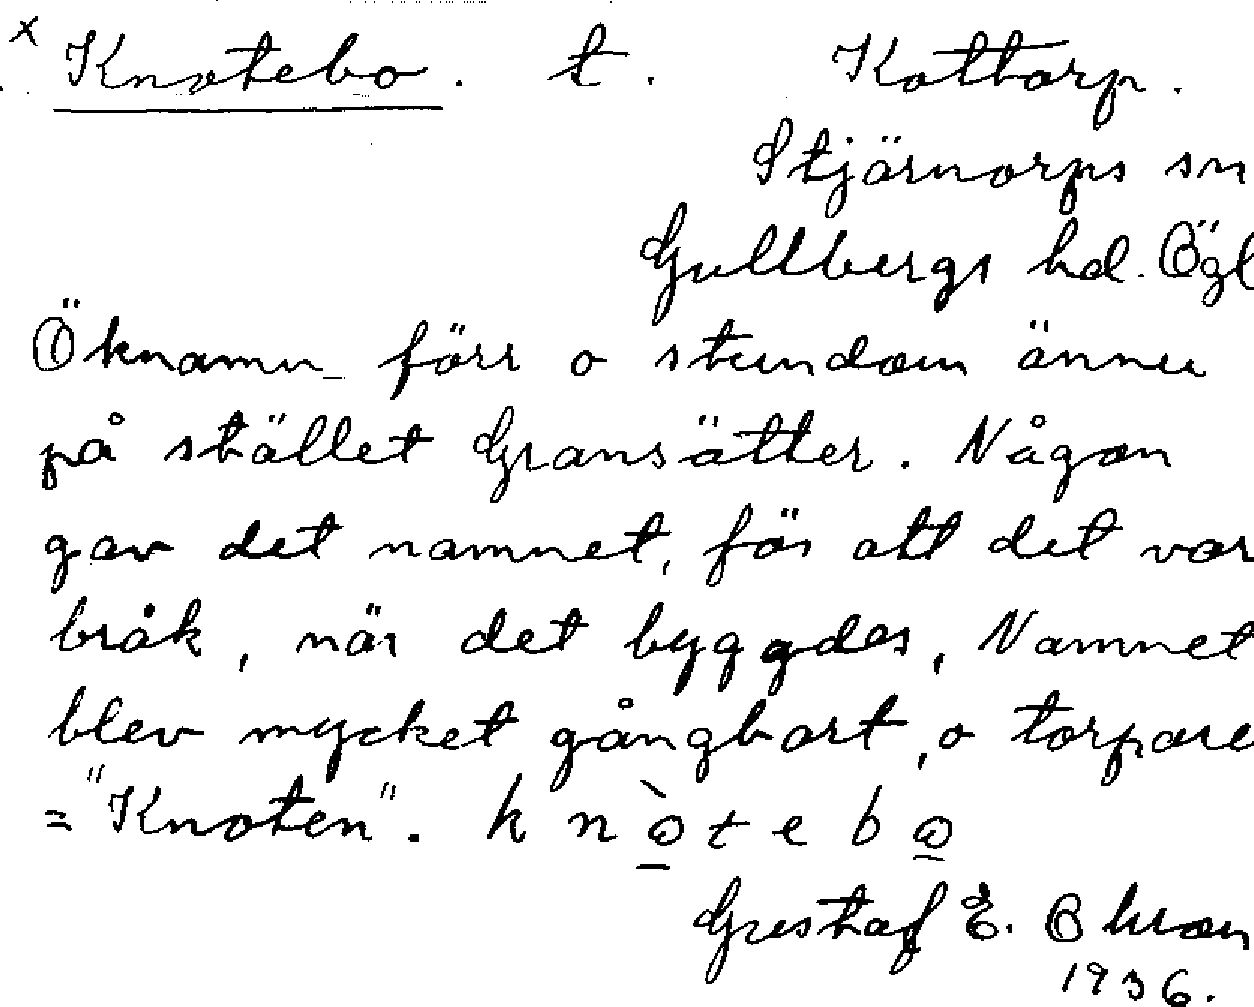 x Knotebo. t. Kottorp.
Stjärnorps sn
Gullbergs hd. Ögl
Öknamn förr o stundom ännu
på stället Gransätter. Någon
gav det namnet, för att det var
bråk, när det byggdes, Namnet
blev mycket gångbart, o torpare
= "Knoten". k n ò̲ t e b o̲
Gustaf E. Ohron
1936.